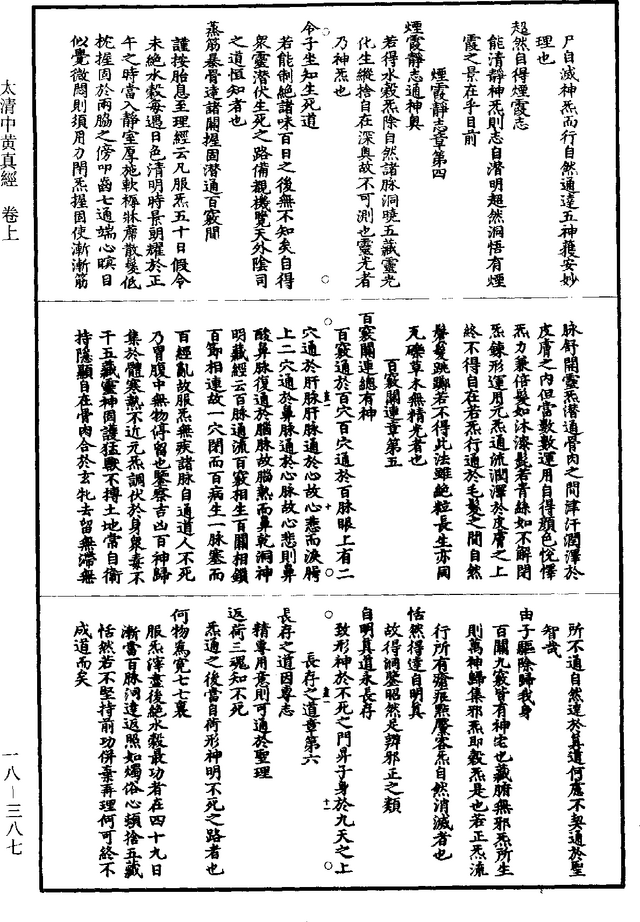 尸自滅神炁而行自然通達五神獲安妙
理也
超然自得煙霞志
能清靜神炁則志自潛明超然洞悟有煙
霞之景在乎目前
煙霞靜志章第四
煙霞靜志通神奧
若得水穀炁除自然諸脉洞曉五藏靈光
化生縱捨自在深奧故不可測也靈光者
乃神炁也
令子坐知生死道
若能制絕諸味百日之後無不知矣自得
衆靈潛伏生死之路備覩機覽天外陰司
之道恒知者也
蒸筋暴骨達諸關握固潛通百竅間
謹按胎息至理經云凡服炁五十日假令
未絕水穀每遇日色清明時景朗耀於正
午之時當入靜室厚施軟褥牀蓆散髮低
枕握固於兩脇之傍叩齒七通端心瞑目
似覺微悶則須用力閉炁握固使漸漸筋
脉舒開靈炁潛通骨肉之間津汗潤澤於
皮膚之内但當數數運用自得顏色悅懌
炁力兼倍髮如沐漆髭若青絲如不解閉
炁鍊形運用元炁通流潤澤於皮膚之上
終不得自在若炁行通於毛髮之間自然
髮髮跳躑若不得此法雖絕粒長生亦同
瓦礫草木無精光者也
百竅關連章第五
百竅關連總有神
百竅通於百穴百穴通於百脉眼上有二
穴通於肝脉肝脉通於心故心悲而淚腭
上二穴通於鼻脉通於心脉故心悲則鼻
酸鼻脉復通於腦脉故腦熱而鼻乾洞神
明藏經云百脉通流百竅相生百關相鎖
百節相連故一穴閉而百病生一脉塞而
百經亂故服炁無疾諸脉自通道人不死
乃胃腹中無物停留也鑒察吉凶百神歸
集於體寒熱不近元炁調伏於身衆毒不
干五藏靈神固護猛獸不搏土地常自衛
持隱顯自在骨肉合於玄牝去留無滯無
所不通自然達於真道何慮不契通於聖
智哉
由子驅除歸我身
百關九竅皆有神宅也藏腑無邪炁所生
則萬神歸集邪炁即穀炁是也若正炁流
行所有瘡疵㸃黶客炁自然消滅者也
恬然得達自明真
故得洞鑒昭然是辨邪正之類
自明真道永長存
致形神於不死之門昇子身於九天之上
長存之道章第六
長存之道因專志
精專用意則可通於聖理
返荷三魂知不死
炁通之後當自荷形神明不死之路者也
何物為冤七七裏
服炁滓盡後絕水穀最功者在四十九日
漸當百脉洞達返照如燭俗心頓捨五藏
恬然若不堅持前功併棄再理何可終不
成道而矣
太清中黃真經　卷上
一八—三八七